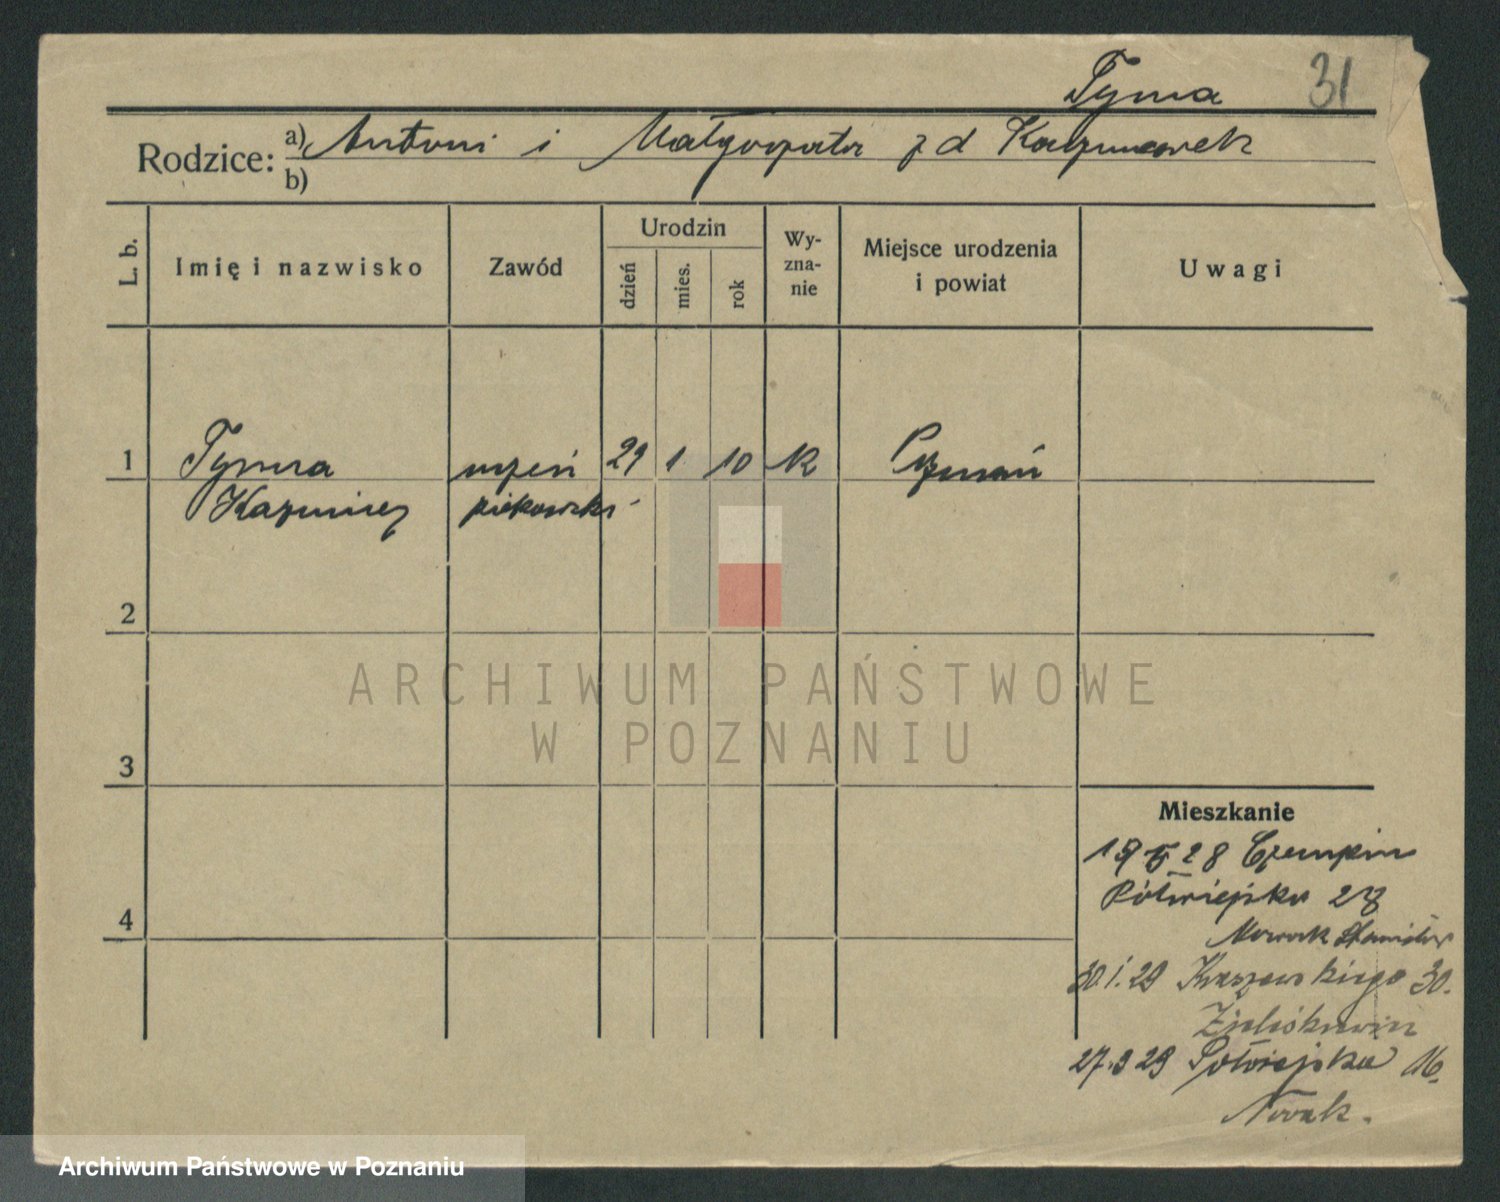 Tyma 31
Rodzice: a) Antoni i Małgorzata z d Kaczmarek
b)
L. b. Imię i nazwisko Zawód Urodzin dzień mies. rok Wy-zna-nie Miejsce urodzenia i powiat Uwagi
1 Tyma uczeń 29 1 10 K Poznań
Kazimierz piekarski
2
ARCHIWUM PAŃSTWOWE
W POZNANIU
3
Mieszkanie
28 Czempin
Półwiejska
4
Nowak Stanisław
30.1.29 Kraszewskiego 30.
27.3 29 Półwiejska 16.
Nowak.
Archiwum Państwowe w Poznaniu